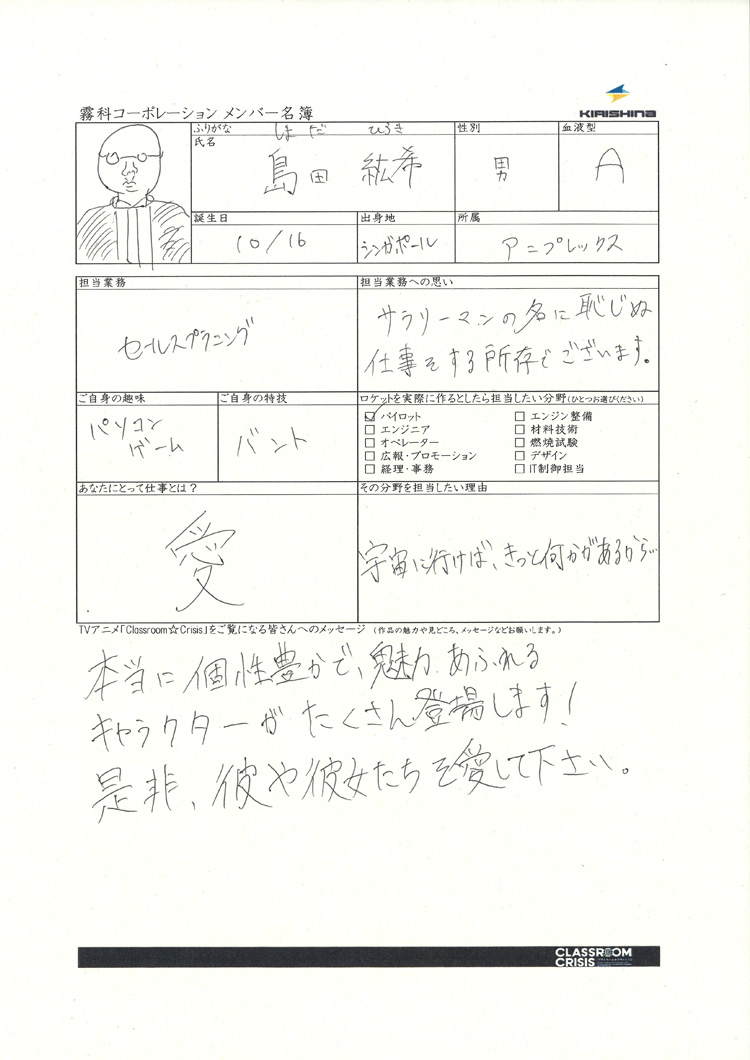 KIRISHINA
霧科コーポレーション メンバー名簿
ふりがな しまだ ひろき
氏名 島田 紘希
性別 男
血液型 A
誕生日 10/16
出身地 シンガポール
所属 アニプレックス
担当業務
セールスプラニング
担当業務への思い
サラリーマンの名に恥じぬ
仕事をする所存でございます。
ご自身の趣味
パソコン
ゲーム
ご自身の特技
バント
ロケットを実際に作るとしたら担当したい分野(ひとつお選びください)
☑ パイロット
□ エンジニア
□ オペレーター
□ 広報・プロモーション
□ 経理・事務
□ エンジン整備
□ 材料技術
□ 燃焼試験
□ デザイン
□ IT制御担当
あなたにとって仕事とは?
愛
その分野を担当したい理由
宇宙に行けば、きっと何かがあるから…
TVアニメ「Classroom☆Crisis」をご覧になる皆さんへのメッセージ (作品の魅力や見どころ、メッセージなどお願いします。)
本当に個性豊かで、魅力あふれる
キャラクターがたくさん登場します!
是非、彼や彼女たちを愛して下さい。
CLASSROOM
CRISIS